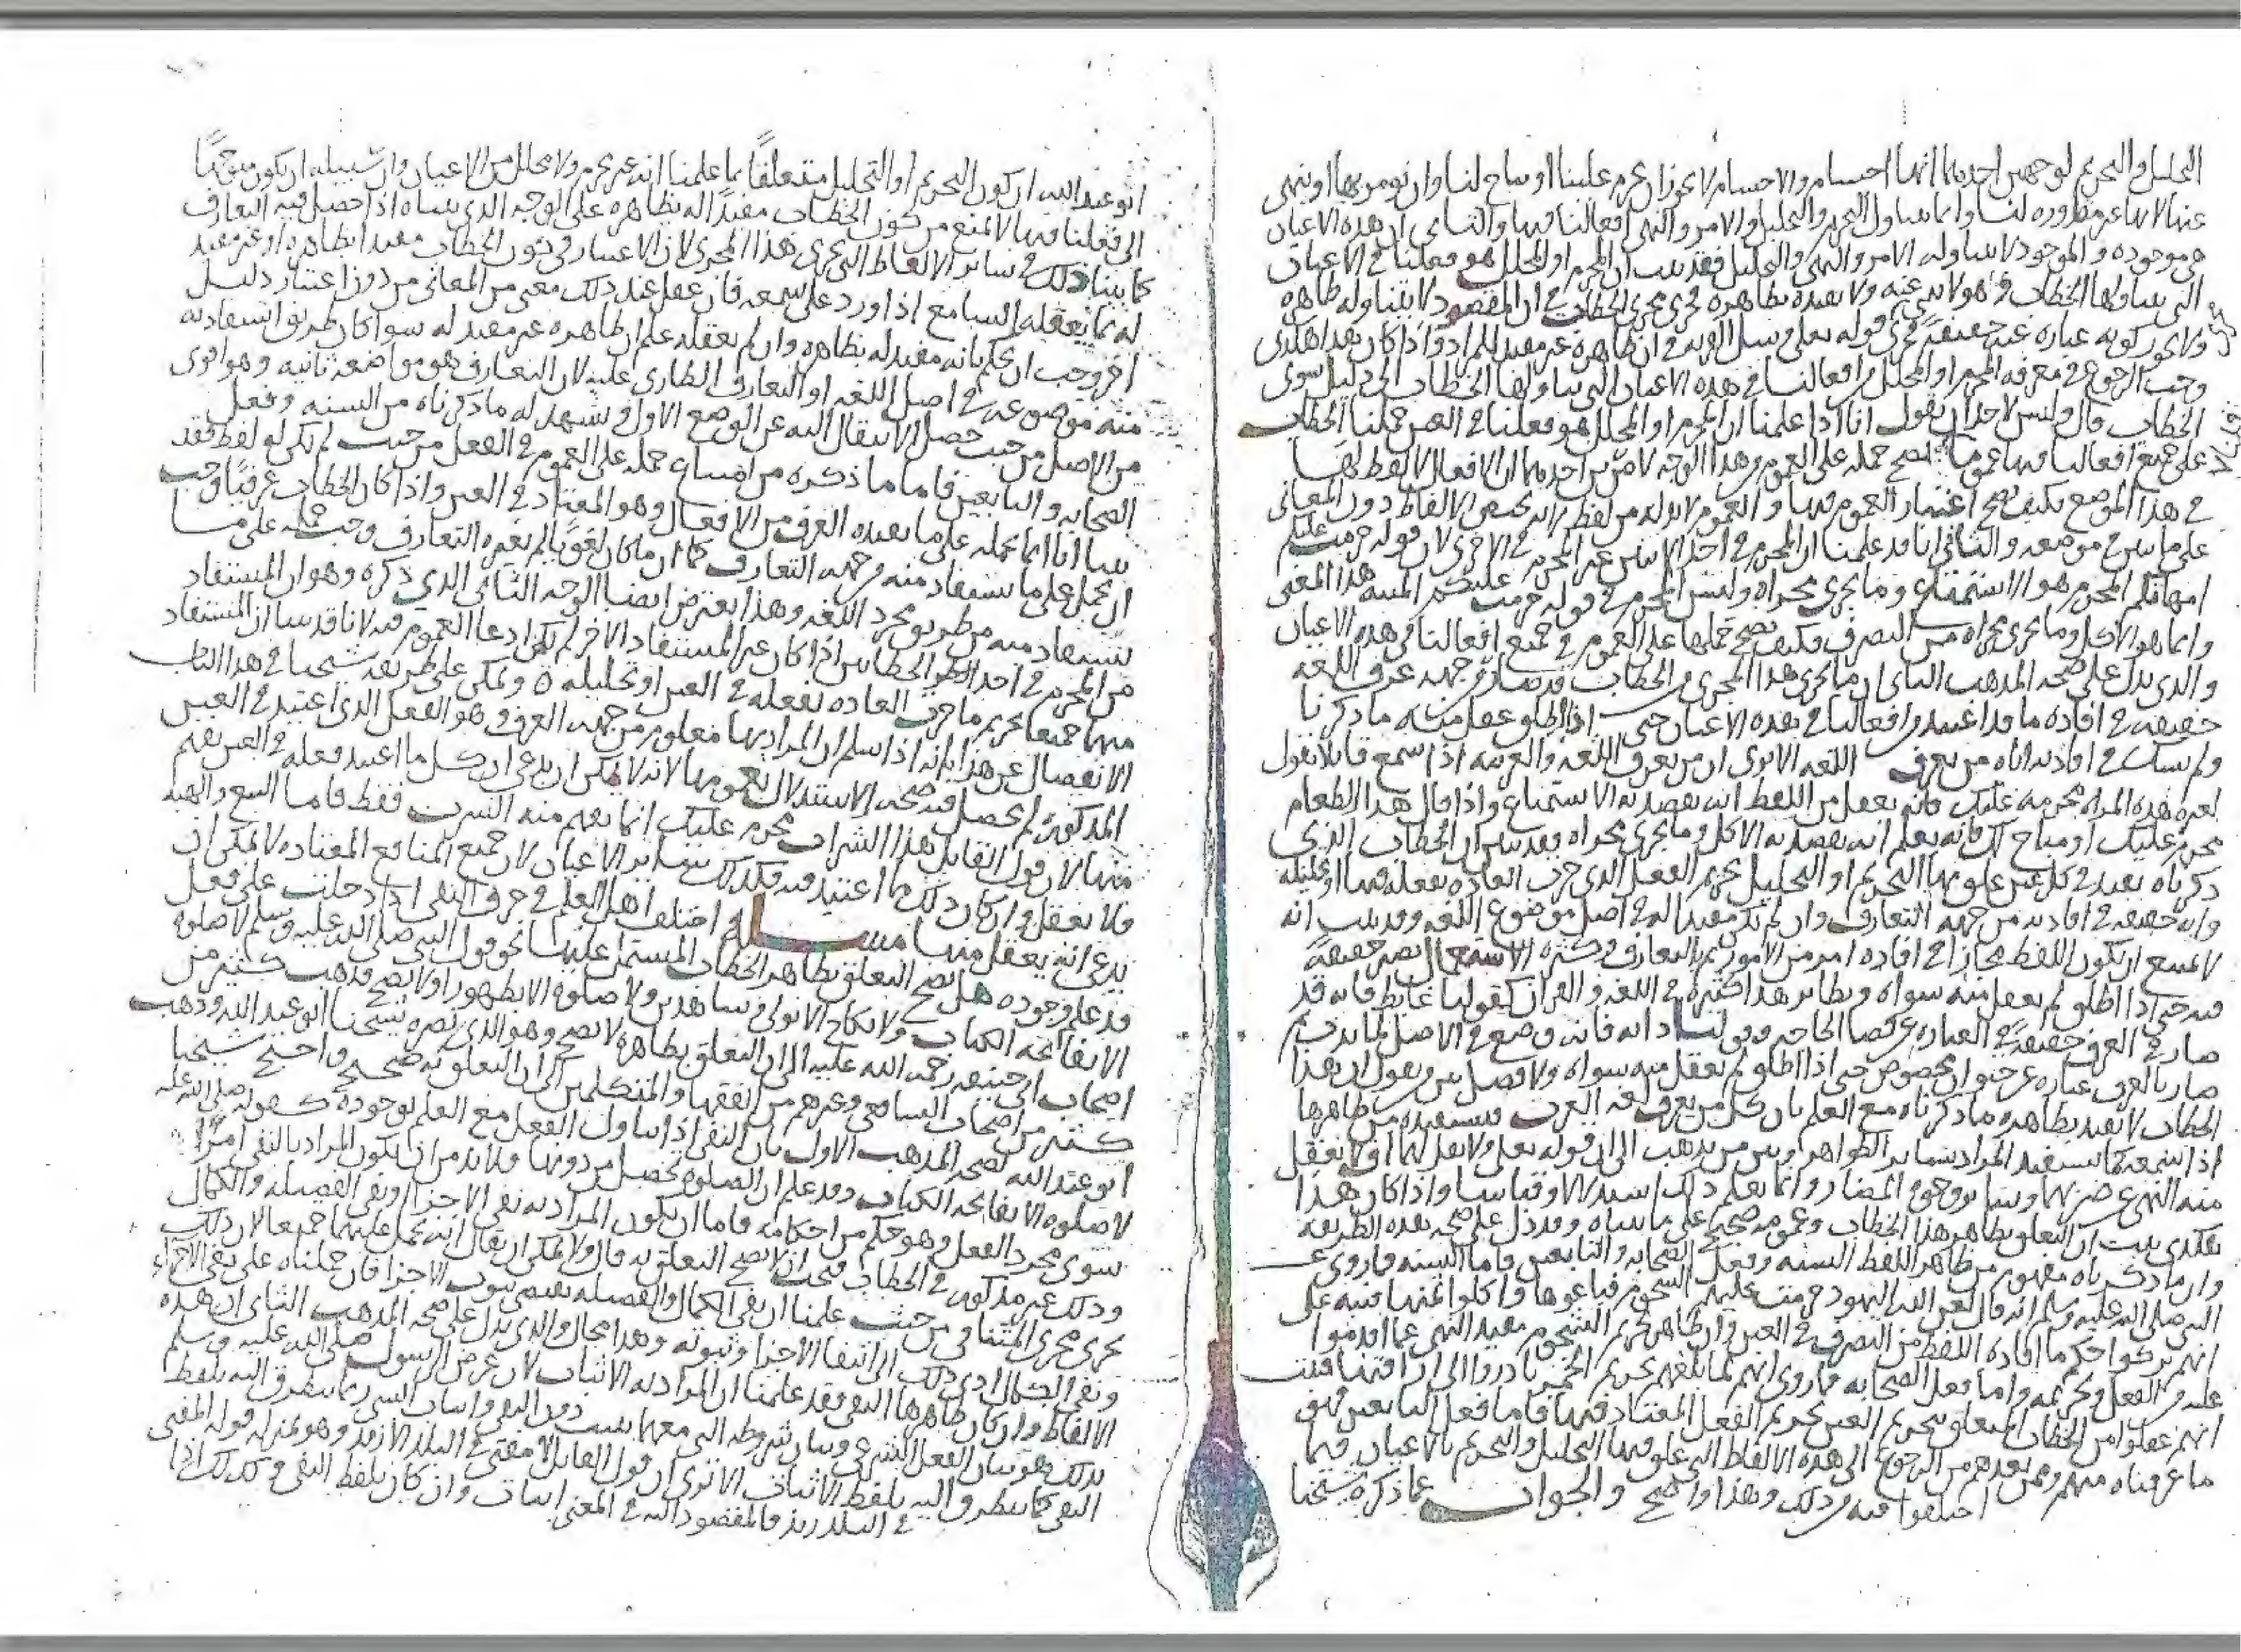 التحليل والتحريم لوجهين احدهما انها اجسام والاجسام لا يجوز ان تحرم علينا او تباح لنا وان نومر بها او ننهى
عنها لانها غير مقدوره لنا وانما يتناول التحريم والتحليل والامر والنهي افعالنا فيها والثاني ان هذه الاعيان
هي موجوده والموجود لا يتناوله الامر والنهي والتحليل فقد ثبت ان المحرم او المحلل هو فعلنا في الاعيان
التي يتناولها الخطاب وهو لا ينبي عنه ولا يفيده بظاهره فجرى مجرى الخطاب في ان المقصود لا يتناوله ظاهره
ولا يجوز كونه عباره عنه حقيقةً فجرى قوله تعلى وسل القريه في ان ظاهره غير مفيد للمراد واذا كان هذا هكذى
وجب الرجوع في معرفه المحرم او المحلل من افعالنا في هذه الاعيان التي تناولها الخطاب الى دليل سوى
الخطاب قال وليس لاحد ان يقول انا اذا علمنا ان المحرم او المحلل هو فعلنا في العين حملنا الخطاب
على جميع افعالنا فيها عموما فصح حمله على العموم وهذا الوجه لامرين احدهما ان الافعال لا لفظ لها
في هذا الموضع فكيف يصح اعتبار العموم فيها والعموم لا بد له من لفظ لانه يختص الالفاظ دون المعاني
على ما بين في موضعه والثاني انا قد علمنا ان المحرم في احد الايتين غير المحرم في الاخرى لان قوله حرمت عليكم
امهاتكم المحرم هو الاستمتاع وما يجري مجراه وليس المحرم في قوله حرمت عليكم الميته هذا المعنى
وانما هو الاكل وما يجري مجراه من التصرف فكيف يصح حملها على العموم في جميع افعالنا في هذه الاعيان
والذي يدل على صحه المذهب الثاني ان ما يجري هذا المجرى من الخطاب قد صار من جهه عرف اللغه
حقيقه في افاده ما قد اعتيد من افعالنا في هذه الاعيان حتى اذا اطلق عقل منه ما ذكرنا
ولم يشك في افادته اياه من يعرف اللغه الا ترى ان من يعرف اللغه والعربيه اذا سمع قايلا يقول
لغيره هذه المراه محرمه عليك فانه يعقل من اللفظ انه يقصد به الاستمتاع واذا قال هذا الطعام
محرم عليك او مباح لك فانه يعلم انه يقصد به الاكل وما يجري مجراه فقد بين ان الخطاب الذي
ذكرناه يفيد في كل عين علق بها التحريم او التحليل تحريم الفعل الذي جرت العاده بفعله فيها او تحليله
وانه حقيقه في افادته من جهه التعارف وان لم يكن مفيدا له في اصل موضوع اللغه وقد ثبت انه
لا يمتنع ان يكون اللفظ مجازا في افاده امر من الامور ثم بالتعارف وكثره الاستعمال يصير حقيقةً
فيه حتى اذا اطلق لم يعقل منه سواه ونظاير هذا كثيره في اللغه والقران كقولنا غايط فانه قد
صار في العرف حقيقةً في العباره عن قضا الحاجه وقولنا دابه فانه وضع في الاصل لما يدب ثم
صار بالعرف عباره عن حيوان مخصوص حتى اذا اطلق لم يعقل منه سواه ولا فصل بين من يقول ان هذا
الخطاب لا يفيد بظاهره ما ذكرناه مع العلم بان كل من يعرف لغه العرب يستفيده من ظاهرها
اذا سمعه كما يستفيد المراد بساير الظواهر وبين من يذهب الى ان قوله تعلى ولا تقل لهما اف لا يعقل
منه النهي عن ضربهما وساير وجوه المضار وانما يعلم ذلك استدلالا وقياسا واذا كان هذا
هكذى ثبت ان التعلق بظاهر هذا الخطاب وعمومه صحيح على ما بيناه وقد دل على صحه هذه الطريقه
وان ما ذكرناه مفهوم من ظاهر اللفظ السنه وفعل الصحابه والتابعين فاما السنه فما روي عن
النبي صلى الله عليه وسلم انه قال لعن الله اليهود حرمت عليهم الشحوم فباعوها واكلوا اثمنها فنبه على
انهم تركوا حكم ما افاده اللفظ من التصرف في العين وان ظاهر تحريم الشحوم مفيد النهي عما اقدموا
عليه من الفعل وتحريمه واما فعل الصحابه فما روي انهم لما بلغهم تحريم الخمر بادروا الى اراقتها فتبت
انهم عقلوا من الخطاب المتعلق بتحريم العين تحريم الفعل المعتاد فيها فاما فعل التابعين فهو
ما عرفناه منهم وممن بعدهم من الرجوع الى هذه الالفاظ التي علق فيها التحليل والتحريم بالاعيان فيما
اختلفوا فيه من ذلك وهذا واضح والجواب عما ذكره شيخنا
ابو عبد الله ان كون التحريم او التحليل متعلقاً بما علمنا انه غير محرم ولا محلل من الاعيان وان سبيله ان يكون متوجهًا
الى فعلنا فيها لا يمنع من كون الخطاب مفيداً له بظاهره على الوجه الذي بيناه اذا حصل فيه التعارف
كما بينا ذلك في ساير الالفاظ التي تجري هذا المجرى لان الاعتبار في كون الخطاب مفيدا بظاهره او غير مفيد
له بما يعقله السامع اذا ورد على سمعه فان عقل عند ذلك معنى من المعاني من دون اعتبار دليل
اخر وجب ان يحكم بانه مفيد له بظاهره وان لم يعقله علم ان ظاهره غير مفيد له سوا كان طريق استفادته
منه موضوعه في اصل اللغه او التعارف الطاري عليه لان التعارف هو مواضعه ثانيه وهو اقوى
من الاصل من حيث حصل الانتقال اليه عن الوضع الاول ويشهد له ما ذكرناه من السنه وفعل
الصحابه والتابعين فاما ما ذكره من امتناع حمله على العموم في الفعل من حيث لم يكن له لفظ فقد
بينا انا انما نحمله على ما يفيده العرف من الافعال وهو المعتاد في العين واذا كان الخطاب عرفيًا وجب
ان يحمل على ما يستفاد منه من جهه التعارف كما ان ما كان لغويًا لم يغيره التعارف وجب حمله على ما
يستفاد منه من طريق مجرد اللغه وهذا يعترض ايضا الوجه الثاني الذي ذكره وهو ان المستفاد
من المحرم في احد الخطابين اذا كان غير المستفاد من الاخر لم يمكن ادعا العموم فيه لانا قد بينا ان المستفاد
منها جميعا تحريم ما جرت العاده بفعله في العين او تحليله ٥ ويمكن على طريقه شيخنا في هذا الباب
الانفصال عن هذا بانه اذا سلم ان المراد بها معلوم من جهه العرف وهو الفعل الذي اعتيد في العين
المذكوره لم يحصل فيه صحه الاستدلال بعمومها لانه لا يمكن ان يدعى ان كل ما اعتيد فعله في العين يفهم
منها لان قول القايل هذا الشراب محرم عليك انما يفهم منه الشرب فقط فاما البيع والهبه
فلا يعقل وان كان ذلك مما اعتيد فيه فكذلك ساير الاعيان لان جميع المنافع المعتاده لا يمكن ان
يدعى انه يعقل منها مســـله اختلف اهل العلم في حرف النفي اذا دخلت على فعل
قد علم وجوده هل يصح التعلق بظاهر الخطاب المشتمل عليها نحو قول النبي صلى الله عليه وسلم لا صلوه
الا بفاتحه الكتاب ولا نكاح الا بولي وشاهدين ولا صلوه الا بطهور او لا يصح فذهب كثير من
اصحاب ابي حنيفه رحمه الله عليه الى ان التعلق بظاهره لا يصح وهو الذي نصره شيخنا ابو عبد الله وذهب
كثير من اصحاب الشافعي وغيرهم من الفقها والمتكلمين الى ان التعلق به صحيح واحتج شيخنا
ابو عبد الله لصحه المذهب الاول بان النفي اذا تناول الفعل مع العلم بوجوده كقوله صلى الله عليه
لا صلوه الا بفاتحه الكتاب وقد علم ان الصلوه تحصل من دونها فلا بد من ان يكون المراد بالنفي امرًا
سوى مجرد الفعل وهو حكم من احكامه فاما ان يكون المراد به نفي الاجزا او نفي الفضيله والكمال
وذلك غير مذكور في الخطاب فيجب ان لا يصح التعلق به قال ولا يمكن ان يقال انه يحمل عليهما جميعا لان ذلك
يجري مجرى المتنافي من حيث علمنا ان نفي الكمال والفضيله يقتضي ثبوت الاجزا فان حملناه على نفي الاجزاء
ونفي الكمال ادى ذلك الى انتفا الاجزا وثبوته وهذا محال والذي يدل على صحه المذهب الثاني ان هذه
الالفاظ وان كان ظاهرها النفي فقد علمنا ان المراد به الاثبات لان غرض الرسول صلى الله عليه وسلم
بذلك هو بيان الفعل الشرعي وبيان شروطه التي معها يثبت دون النفي واثبات الشي ربما يتطرق اليه بلفظ
النفي كما يتطرق اليه بلفظ الاثبات الا ترى ان قول القايل لا مفتي في البلد الا زيد وهو بمنزله قوله المفتي
في البلد زيد فالمقصود اليه في المعنى اثبات وان كان بلفظ النفي وكذلك اذا